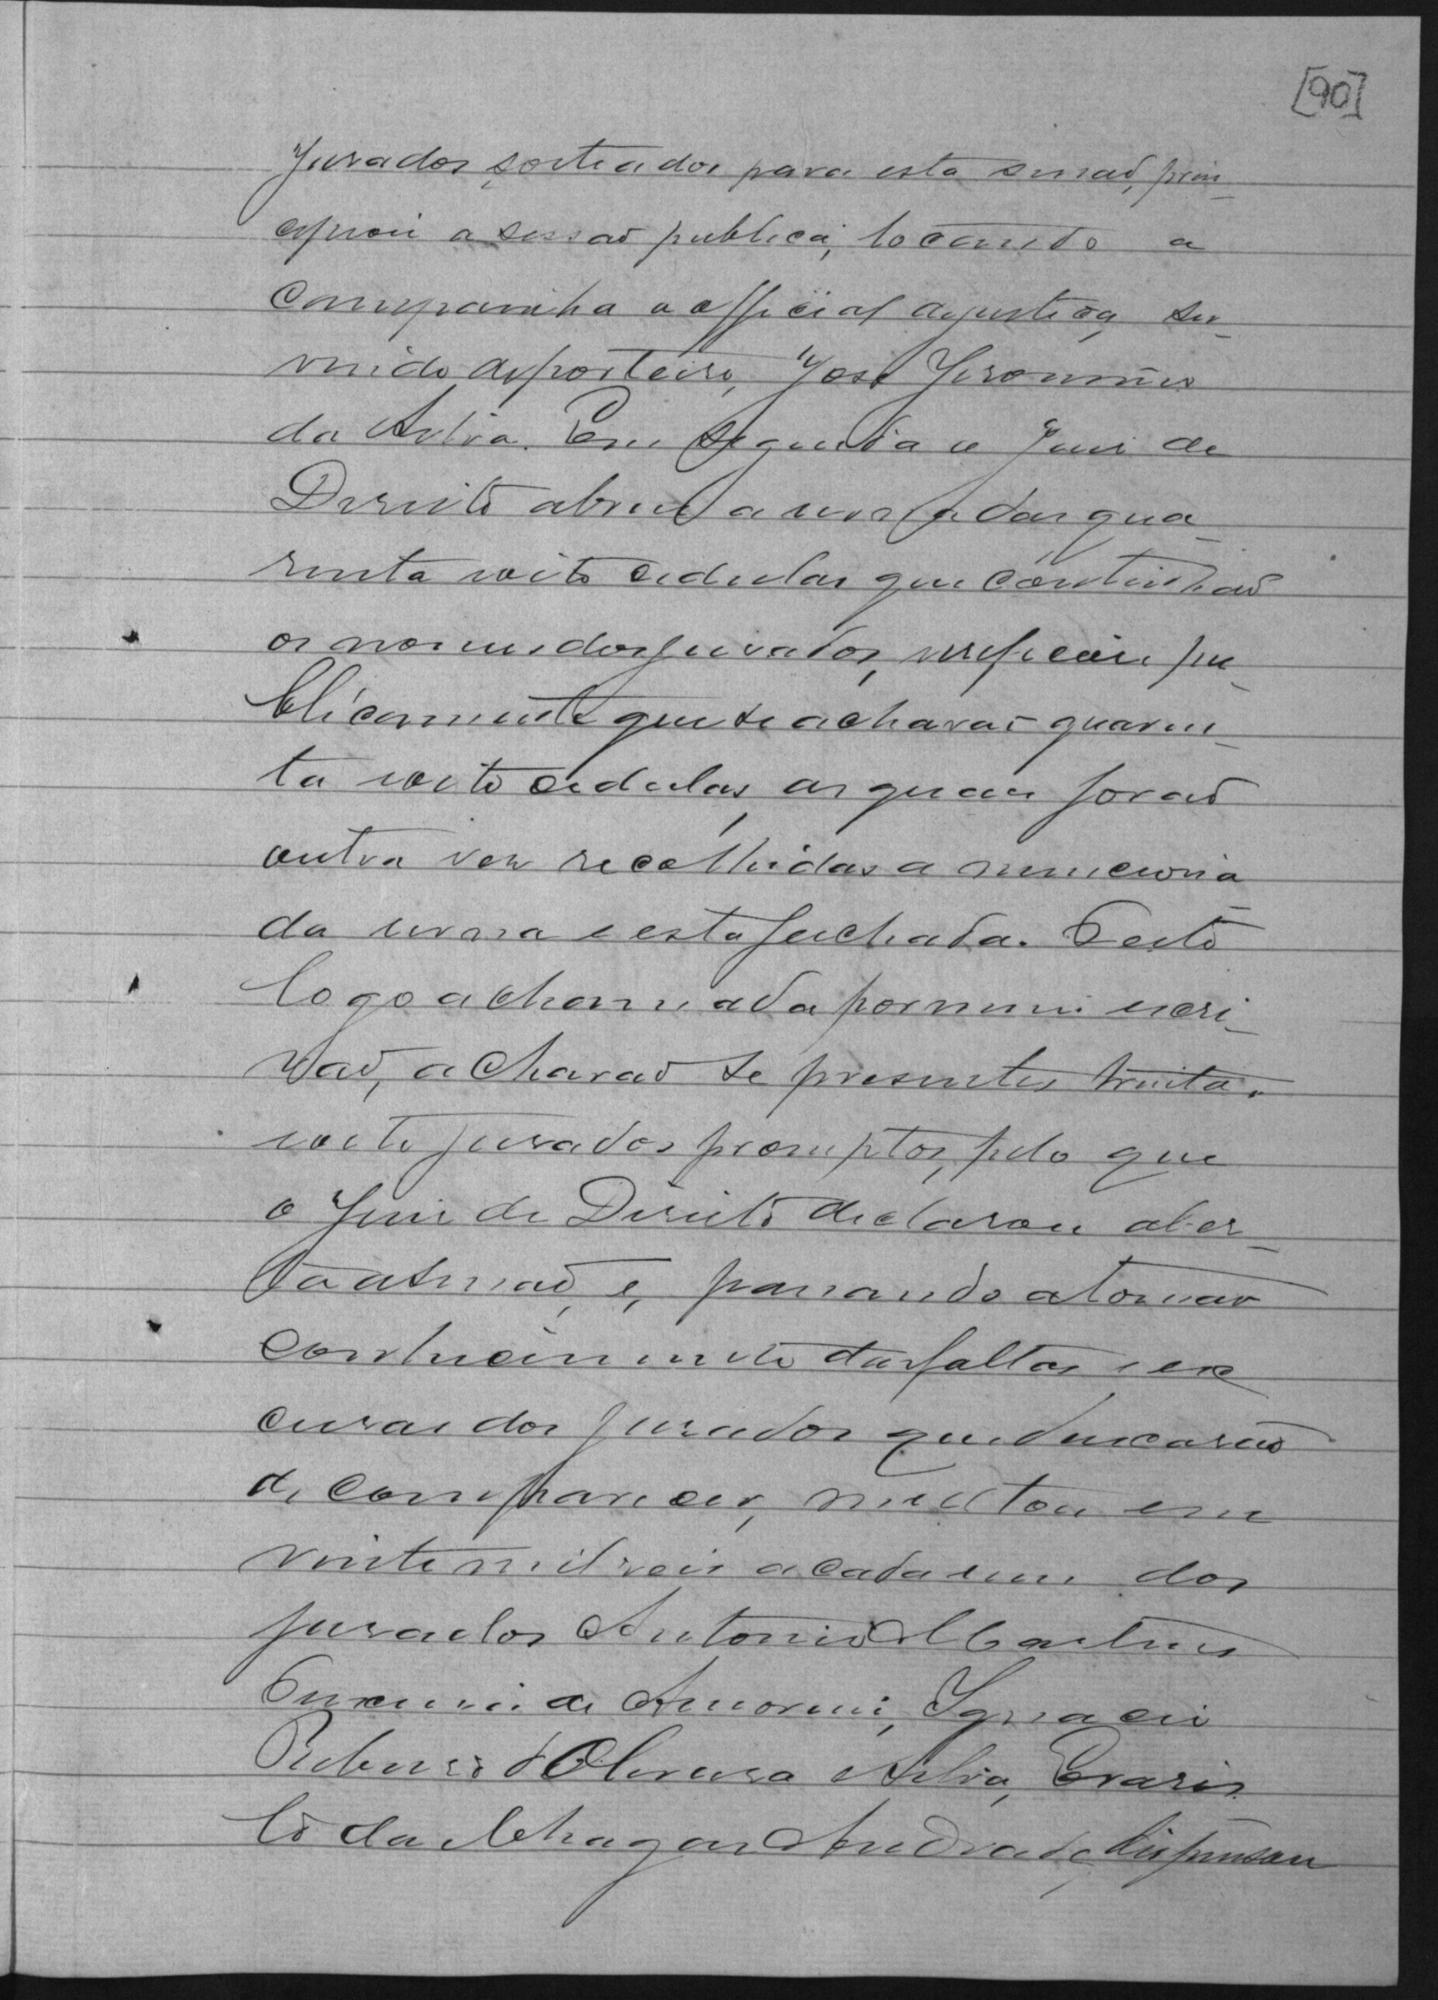 [90]
Jurados sorteados para esta sessaõ, prin-
cipiou a sessaõ publica, tocando a
campainha o official de justiça, ser-
vindo de porteiro, José Jeronimo
da Silva. Em seguida o Juiz de
Direito abrio a urna das qua-
renta e oito cedulas que continhaõ
os nomes dos jurados, verificou pu-
blicamente que se achavaõ quaren-
ta e oito cedulas, as quaes foraõ
outra vez recolhidas a mencciona-
da urna e esta fechada. Feita
logo a chamada por mim escri-
vaõ, acharaõ se presentes trinta e
oito jurados promptos, pelo que
o Juiz de Direito declarou aber-
ta a sessaõ, e, passando a tomar
conhecimento das faltas e es
cusas dos jurados que deixaraõ
de comparecer, multou em
vinte mil reis a cada um dos
jurados Antonio Martins
de Amorim, Ignacio
Ribeiro d'Oliveira e Silva, Evaris
to das Chagas Andrade, dispensou